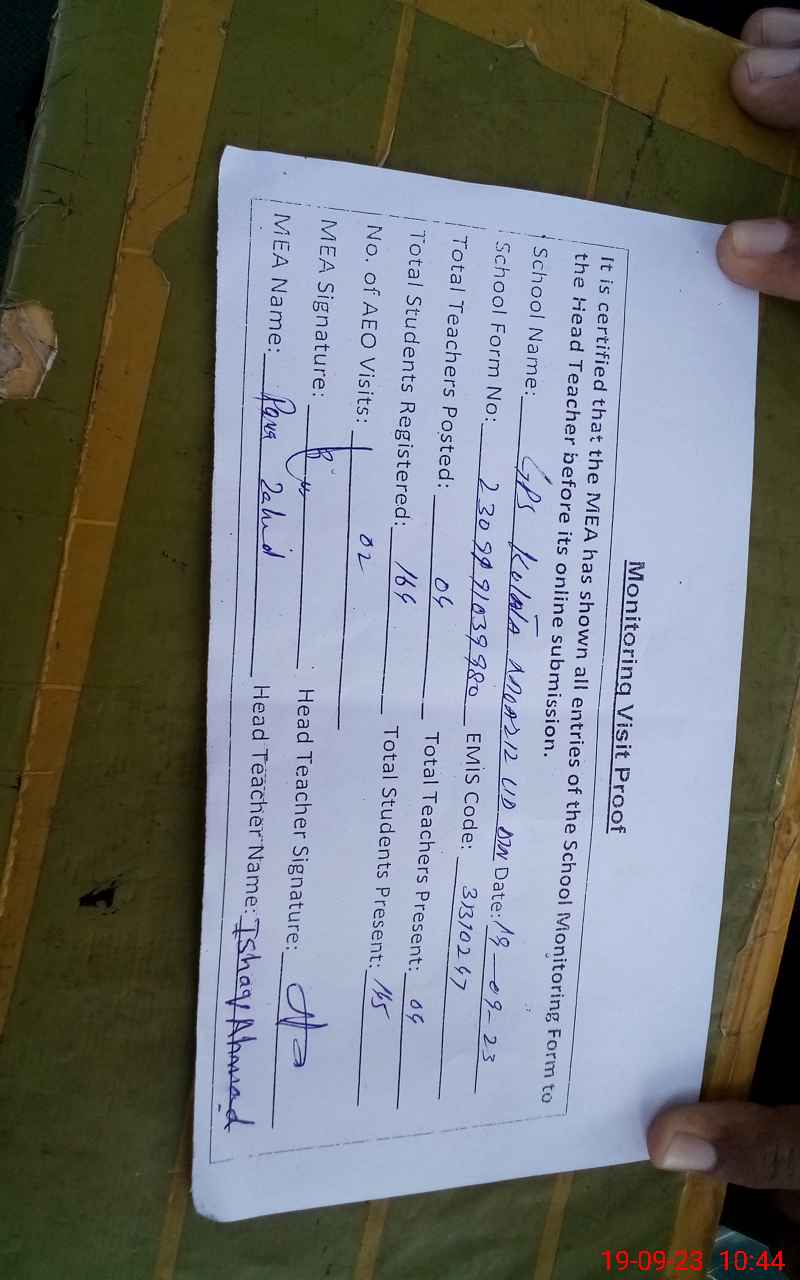 Monitoring Visit Proof
It is certified that the MEA has shown all entries of the School Monitoring Form to
the Head Teacher before its online submission.
School Name: GPS Date: 19-09-23
School Form No: EMIS Code: 31310247
Total Teachers Posted: 04 Total Teachers Present: 04
Total Students Registered: 164 Total Students Present: 145
No. of AEO Visits: 02
MEA Signature: Head Teacher Signature:
MEA Name: Rana Zahid Head Teacher Name: Ishaq Ahmad
19-09-23 10:44